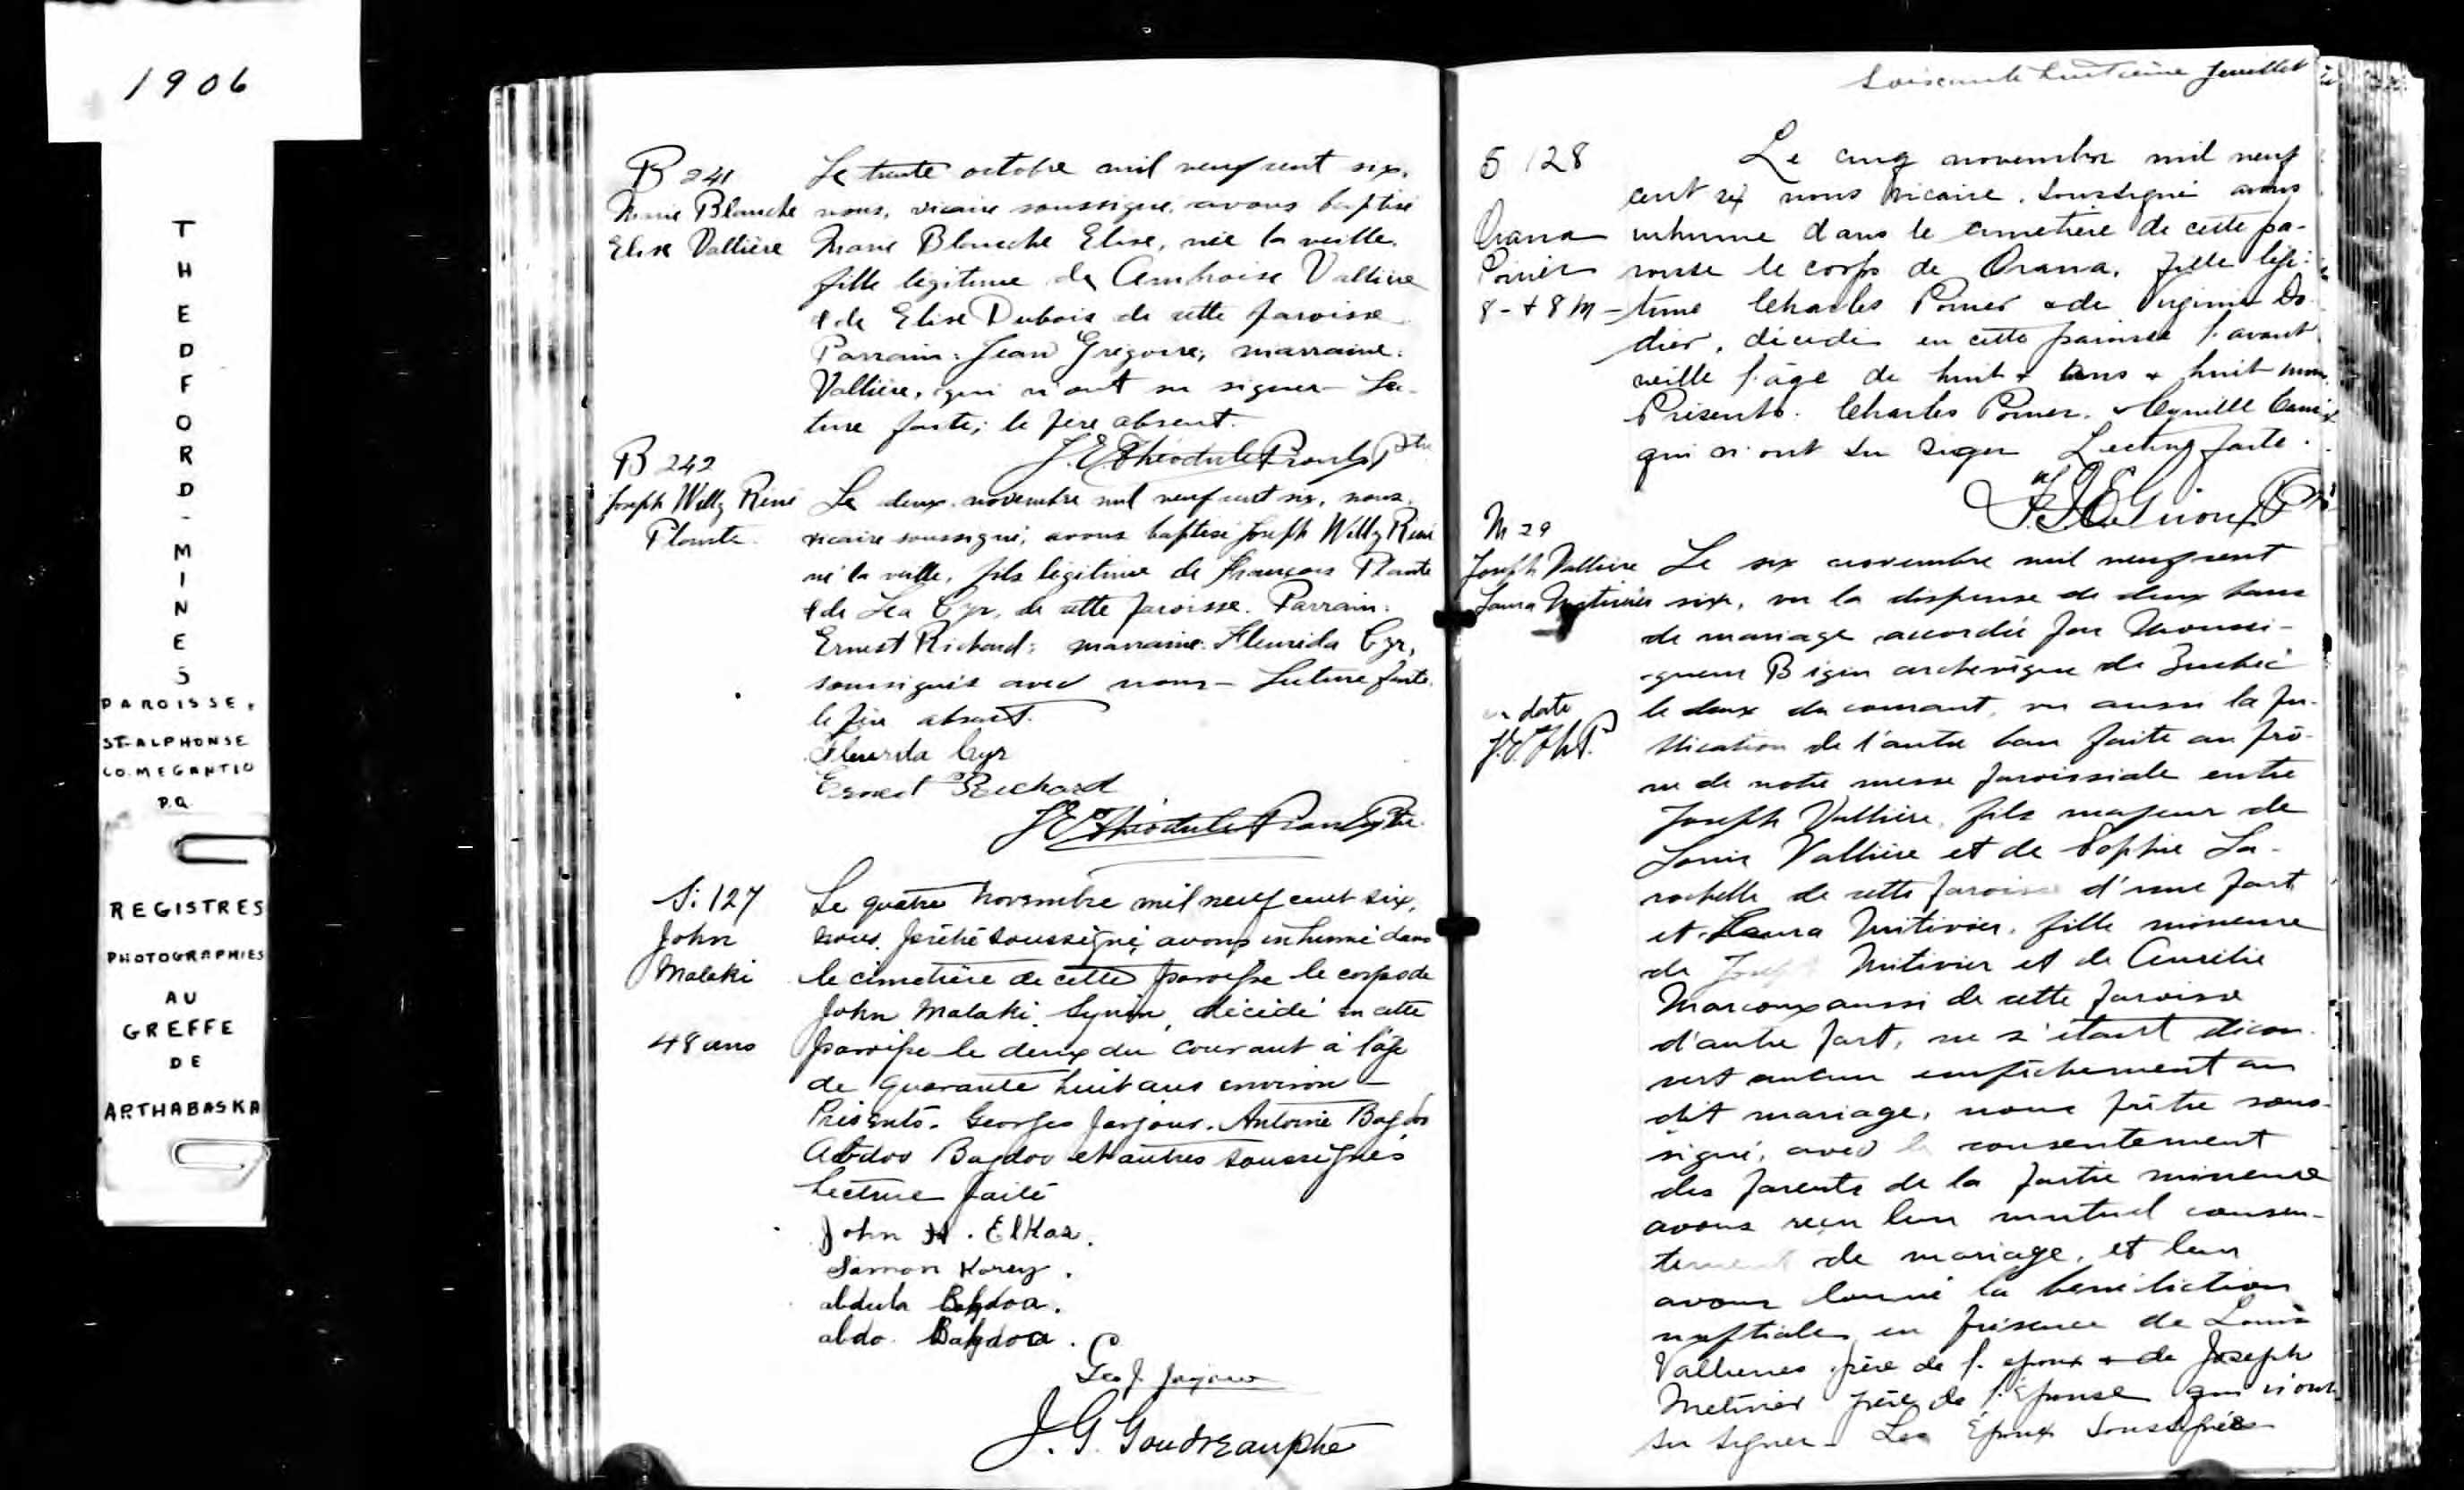 1906
THEDFORD-MINES
PAROISSE,
ST-ALPHONSE
CO. MEGANTIC
P.Q.
REGISTRES
PHOTOGRAPHIES
AU
GREFFE
DE
ARTHABASKA
B 241
Marie Blanche
Elise Vallière
Le trente octobre mil neuf cent six,
nous, vicaire soussigné, avons baptisé
Marie Blanche Elise, née la veille,
fille légitime de Ambroise Vallière
& de Elise Dubois de cette paroisse
Parrain: Jean Grégoire, marraine:
Vallière, qui n'ont su signer - Lec-
ture faite; le père absent.
J. E. Théodule Proulx Ptre
B 242
Joseph Willy Réné
Plante
Le deux novembre mil neuf cent six, nous,
vicaire soussigné, avons baptisé Joseph Willy Réné
né la veille, fils légitime de François Plante
& de Léa Cyr, de cette paroisse. Parrain:
Ernest Richard; marraine: Fleurida Cyr,
soussignés avec nous - Lecture faite.
le père absent.
Fleurida Cyr
Ernest Richard
J E Théodule Proulx Ptre
S. 127
John
Malaki
48 ans
Le quatre Novembre mil neuf cent six,
nous, prêtre soussigné, avons inhumé dans
le cimetière de cette paroisse le corps de
John Malaki, Syrien, décédé en cette
paroisse le deux du courant à l'âge
de quarante huit ans environ -
Présents. Georges Jarjour. Antoine Bagdoo
Abdoo Bagdoo et autres soussignés
Lecture faite
John H. ElKas.
Simon Korey.
abdula Bahdoa.
abdo. Bahdoa.
Geo J. Jarjour
J. G. Goudreau ptre
Soixante huitième feuillet
S 128
Orana
Poirier
8 - + 8 m -
Le cinq novembre mil neuf
cent six nous vicaire soussigné avons
inhumé dans le cimetière de cette pa-
roisse le corps de Orana, fille légi-
time Charles Poirier & de Virginie Do-
dier, décédée en cette paroisse l'avant
veille l'âge de huit + ans + huit mois.
Présents. Charles Poirier, & Cyrille
qui n'ont su signer Lecture faite.
M 29
Joseph Vallière
Laura Métivier
en date
J.E. Th P.
Le six novembre mil neuf cent
six, vu la dispense de deux bans
de mariage accordée par Monsei-
gneur Bégin archevêque de Québec
le deux du courant, vu aussi la pu-
blication de l'autre ban faite au prô-
ne de notre messe paroissiale entre
Joseph Vallière, fils majeur de
Louis Vallière et de Sophie La-
rochelle de cette paroisse d'une part
et Laura Métivier, fille mineure
de Joseph Métivier et de Aurélie
Marcoux aussi de cette paroisse
d'autre part, ne s'étant décou-
vert aucun empêchement au
dit mariage, nous prêtre sous-
signé, avec le consentement
des parents de la partie mineure
avons reçu leur mutuel consen-
tement de mariage, et leur
avons donné la bénédiction
nuptiale en présence de Louis
Vallières père de l'époux & de Joseph
Métivier père de l'Épouse qui n'ont
su signer - Les Époux soussignés